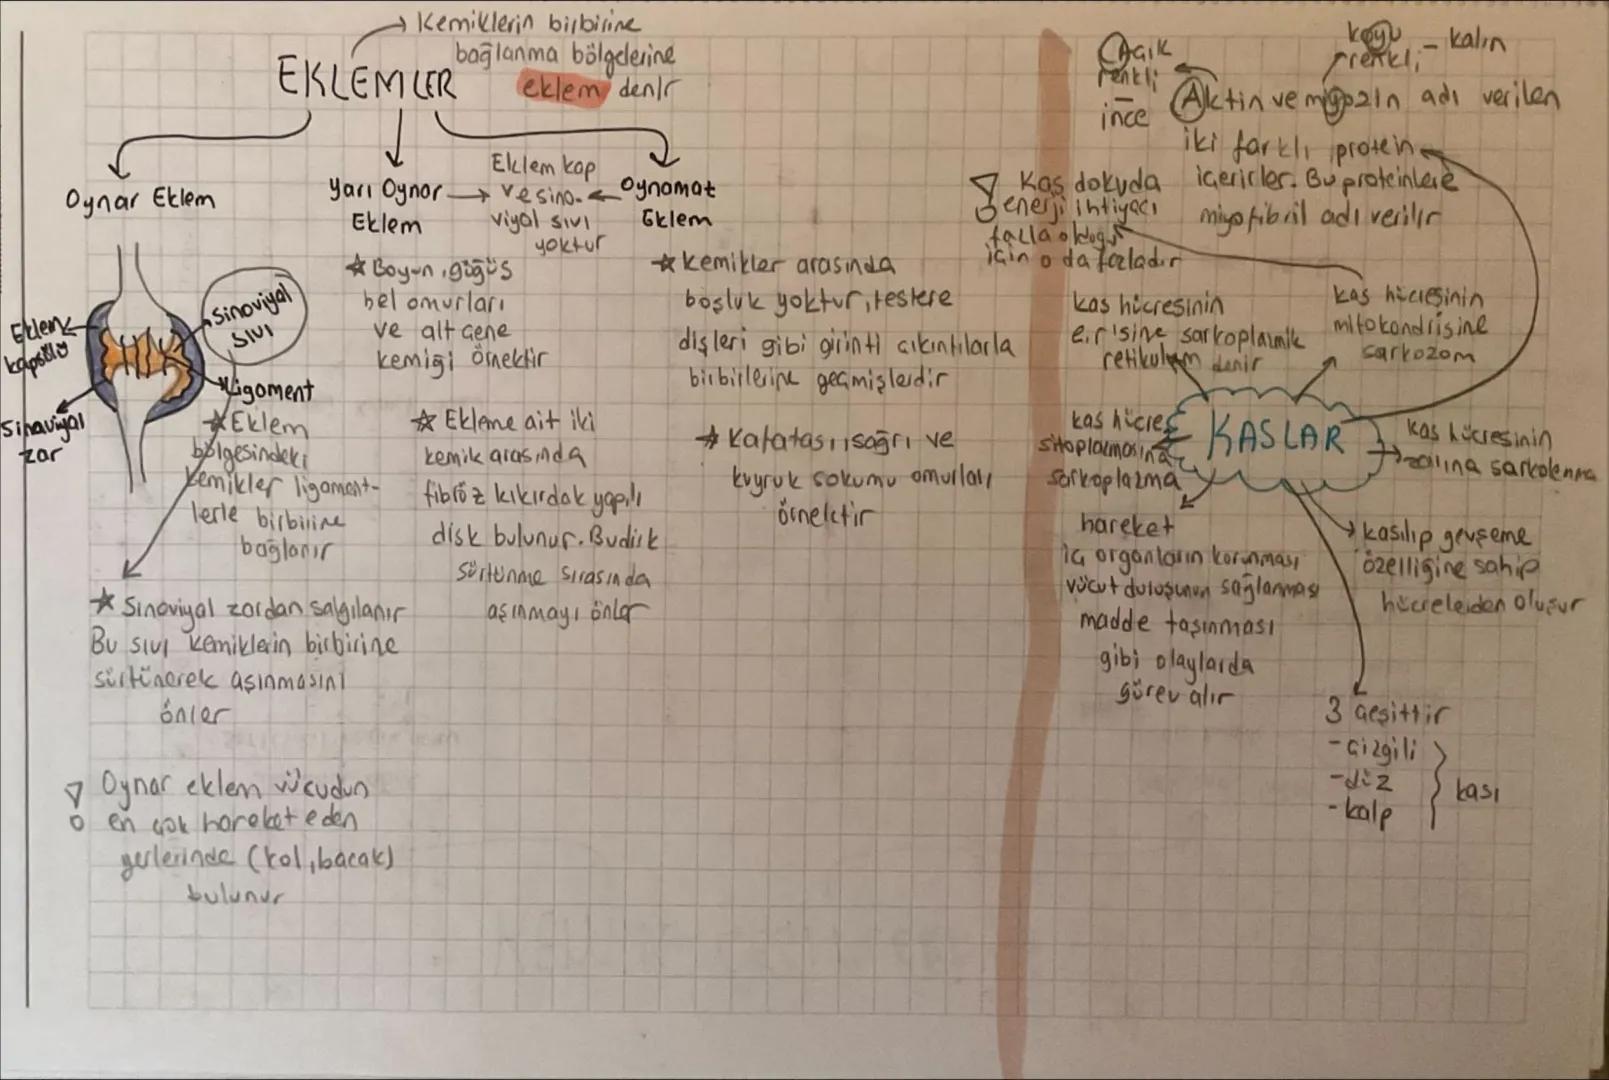 Kemiklerin birbirine
bağlanma bölgelerine
eklem denir
EKLEMLER
Oynar Eklem
Yarı Oynar
Eklem
Eklem kap
ve sino-
viyal sıvı
yoktur
Oynamat
Eklem
Eklem
kapsülü
Sinoviyal
sıvı
Ligament
Sinaviyal
zar
★ Eklem
bölgesindeki
kemikler ligament-
lerle birbirine
bağlanır
★ Sinoviyal zardan salgılanır
Bu sıvı kemiklerin birbirine
sürtünerek aşınmasını
önler
Oynar eklem vücudun
en çok hareket eden
yerlerinde (kol, bacak)
bulunur
★ Boyun, göğüs
bel omurları
ve alt çene
kemiği örnektir
★ Ekleme ait iki
kemik arasında
fibröz kıkırdak yapılı
disk bulunur. Bu disk
sürtünme sırasında
aşınmayı önler
★ Kemikler arasında
boşluk yoktur, testere
dişleri gibi girinti çıkıntılarla
birbirlerine geçmişlerdir
★ Kafatası, sağrı ve
kuyruk sokumu omurları
örnektir
Açık
renkli
ince
koyu
renkli, - kalın
Aktin ve miyozin adı verilen
iki farklı protein
içerirler. Bu proteinlere
miyofibril adı verilir
Kas dokuda
enerji ihtiyacı
fazla olduğu
için o da fazladır
kas hücresinin
e.r'sine sarkoplazmik
retikulum denir
kas hücresinin
mitokondrisine
sarkozom
kas hücre
sitoplazmasına
sarkoplazma
KASLAR
kas hücresinin
zarına sarkolemma
hareket
iç organların korunması
vücut duruşunun sağlanması
madde taşınması
gibi olaylarda
görev alır
kasılıp gevşeme
özelliğine sahip
hücrelerden oluşur
3 çeşittir
- çizgili
- düz
- kalp
kası